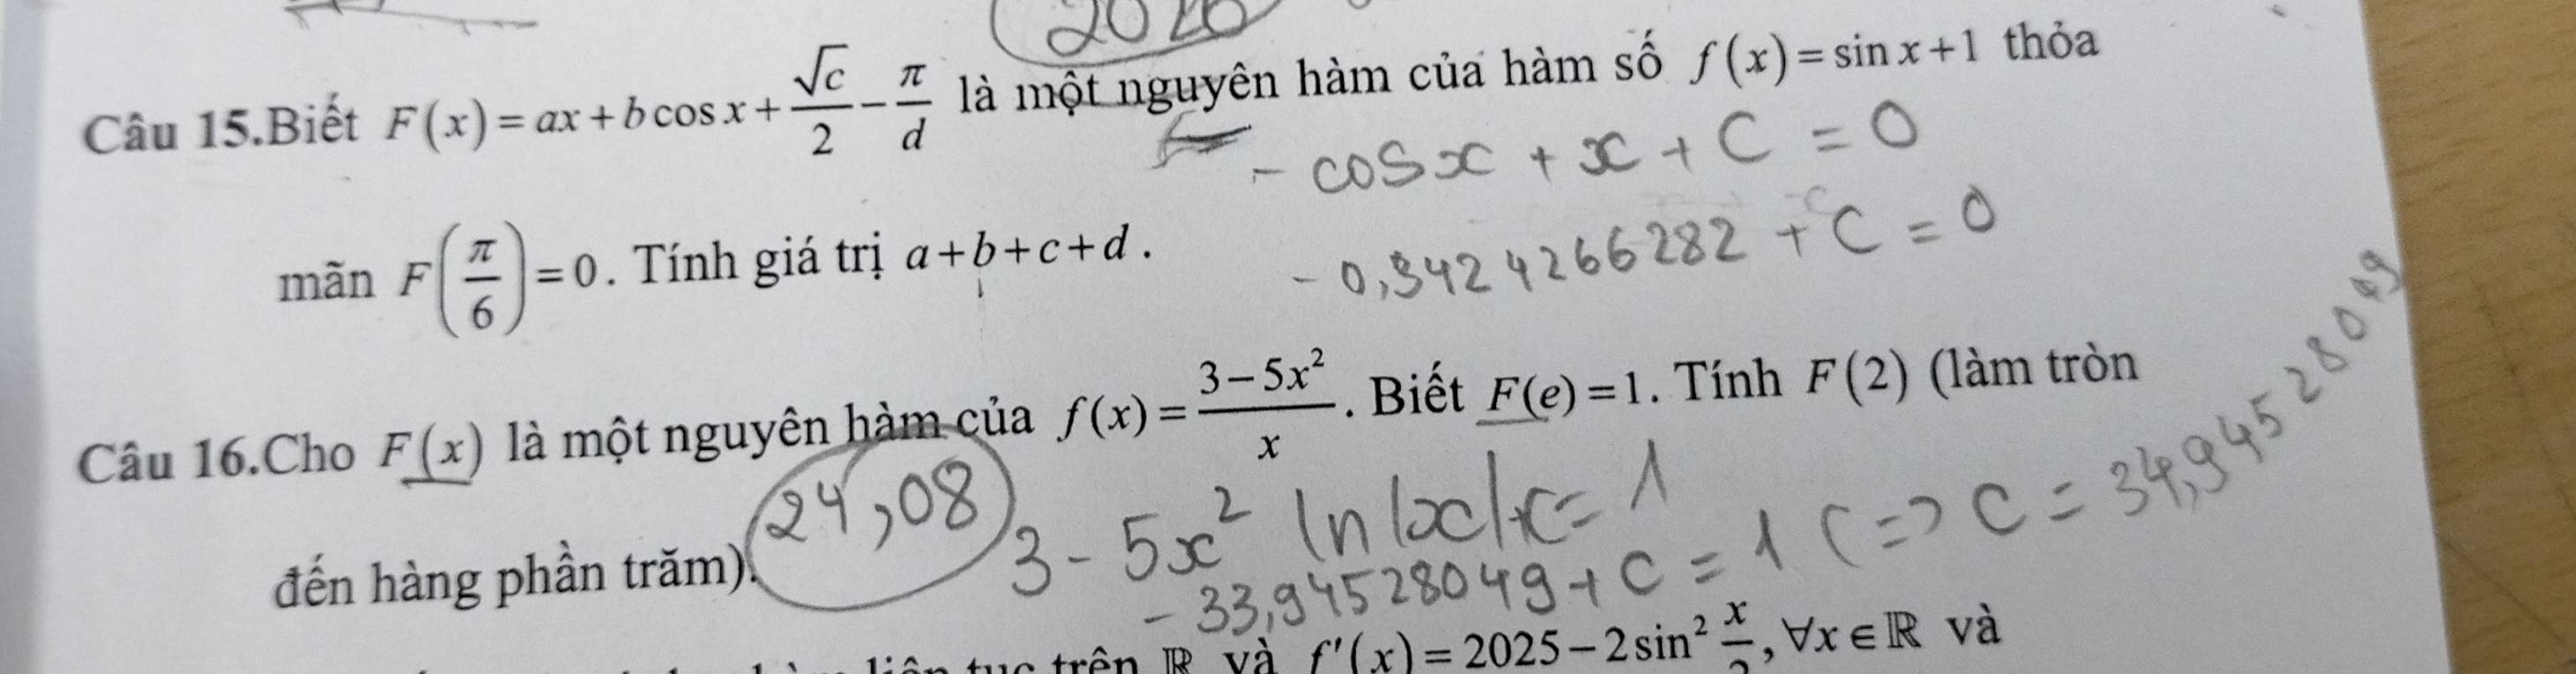 2026
Câu 15.Biết F(x)=ax+b cos x+√c/2−π/d là một nguyên hàm của hàm số f(x)=sin x+1 thỏa
- cosx + x + C = 0
mãn F(π/6)=0. Tính giá trị a+b+c+d.
- 0,3424266282 + C = 0
Câu 16.Cho F(x) là một nguyên hàm của f(x)=(3−5x²)/x. Biết F(e)=1. Tính F(2) (làm tròn
đến hàng phần trăm).
24,08
3 - 5x² ln|x|+C= 1
- 33,94528049 + C = 1 (=> C = 34,94528049
liên tục trên ℝ và f'(x)=2025−2sin² x/2, ∀x∈ℝ và